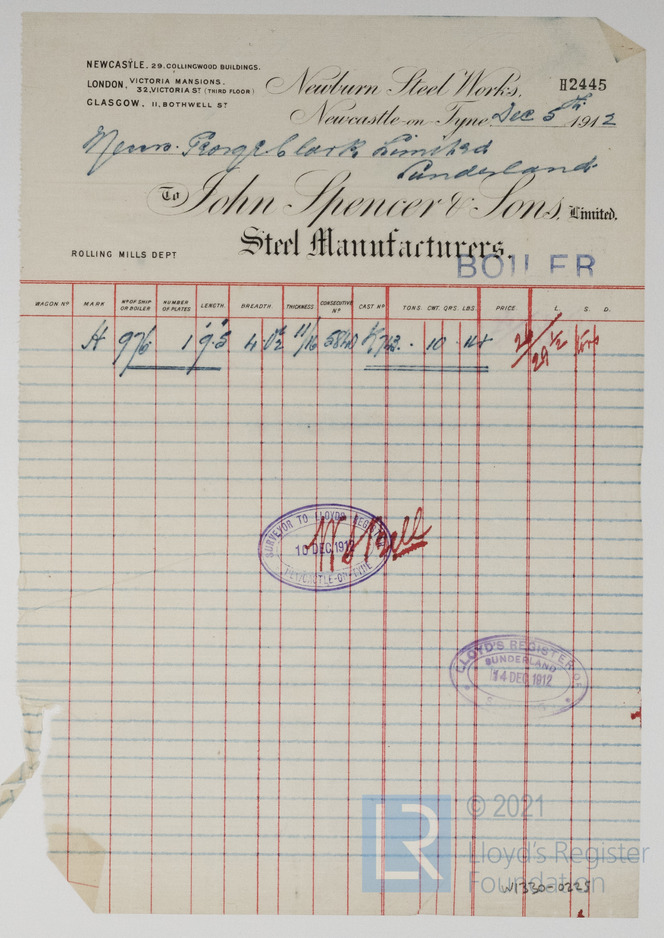 NEWCASTLE. 29. COLLINGWOOD BUILDINGS.
LONDON, VICTORIA MANSIONS. 32, VICTORIA ST (THIRD FLOOR)
GLASGOW. 11, BOTHWELL ST
Newburn Steel Works, H2445
Newcastle-on-Tyne Dec 5th 1912
Messrs. George Clark Limited
Sunderland
To John Spencer & Sons, Limited.
Steel Manufacturers.
ROLLING MILLS DEPT
BOILER
WAGON No MARK No OF SHIP OR BOILER NUMBER OF PLATES LENGTH. BREADTH. THICKNESS CONSECUTIVE No CAST No TONS. CWT. QRS. LBS. PRICE. L. S. D.
H 976 1 9.5 4.0½ 11/16 5840 10
SURVEYOR TO LLOYD'S REGISTER
10 DEC 1912
NEWCASTLE-ON-TYNE
LLOYD'S REGISTER OF
SUNDERLAND
14 DEC 1912
LR
© 2021
Lloyd's Register
Foundation
W1330-0225